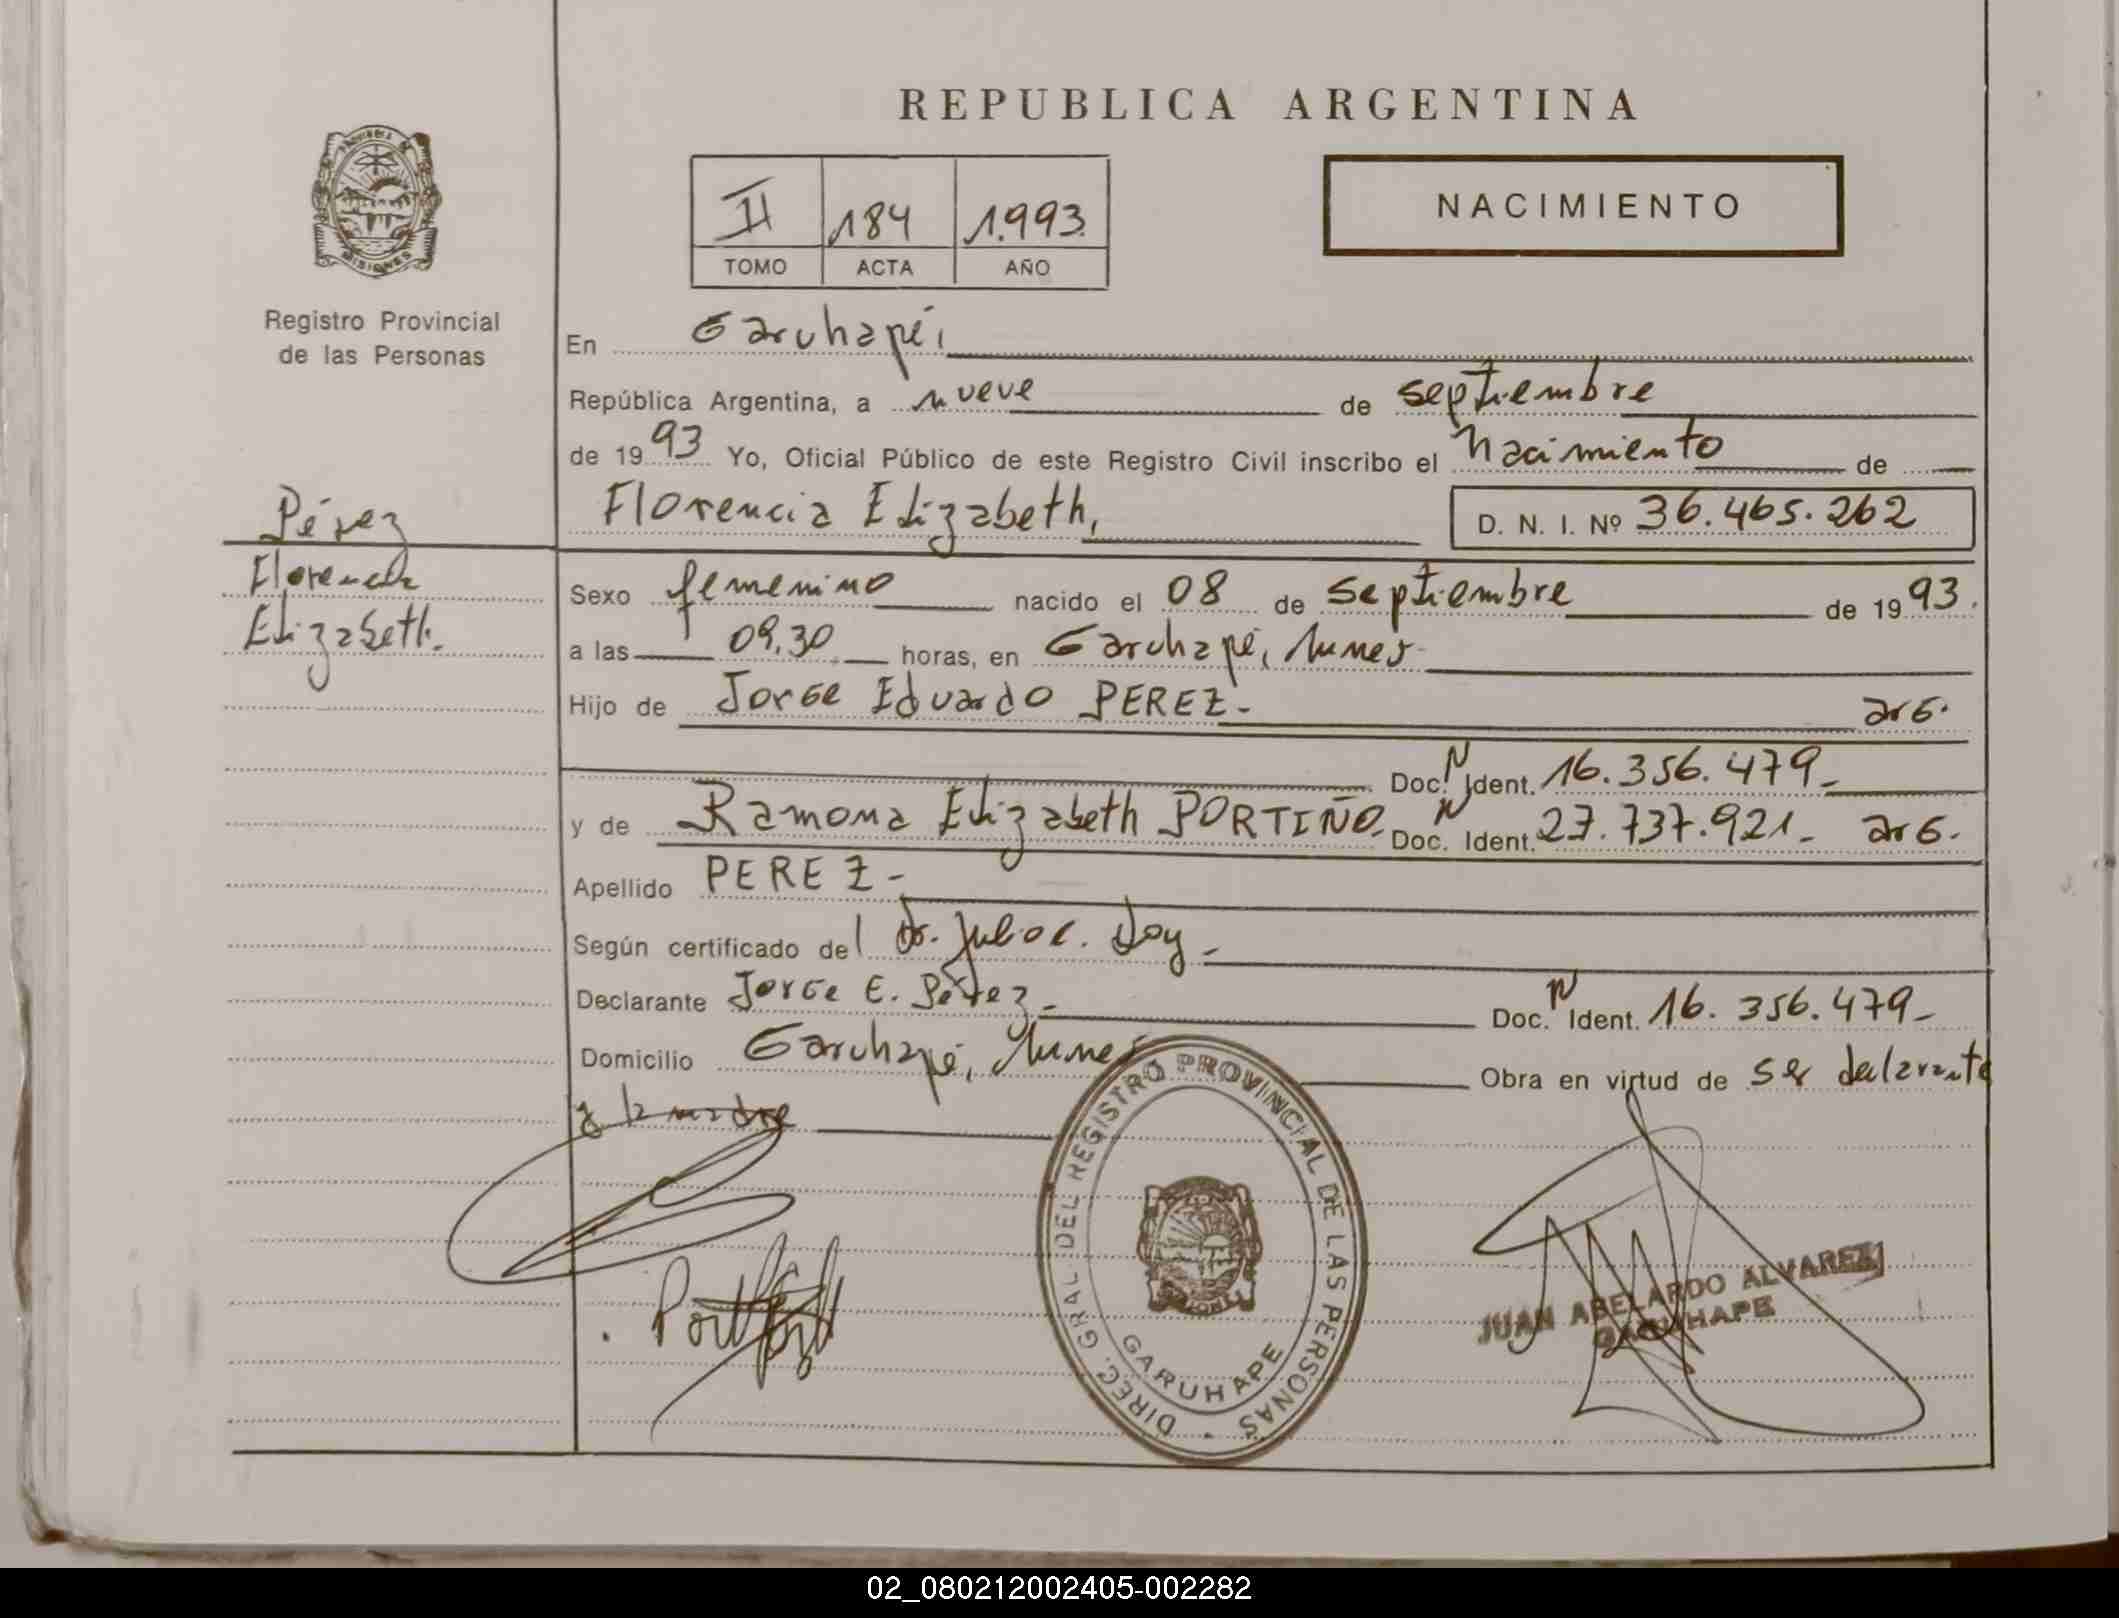 REPUBLICA ARGENTINA
II 184 1.993.
TOMO ACTA AÑO
NACIMIENTO
PROVINCIA DE MISIONES
Registro Provincial
de las Personas
En Garuhapé,
República Argentina, a nueve de septiembre
de 1993 Yo, Oficial Público de este Registro Civil inscribo el Nacimiento de
Florencia Elizabeth, D. N. I. Nº 36.465.262
Pérez
Florencia
Elizabeth.
Sexo femenino nacido el 08 de septiembre de 1993.
a las 09,30 horas, en Garuhapé,
Hijo de Jorge Eduardo PEREZ- arg.
Doc. N Ident. 16.356.479-
y de Ramona Elizabeth PORTIÑO- Doc. N Ident. 27.737.921- arg.
Apellido PEREZ-
Según certificado del Dr. Julio C.
Declarante Jorge E. Pérez- Doc. N Ident. 16.356.479-
Domicilio Garuhapé, Obra en virtud de ser declarante
y la madre
DIREC. GRAL. DEL REGISTRO PROVINCIAL DE LAS PERSONAS
GARUHAPE
JUAN ABELARDO ALVAREZ
GARUHAPE
02_080212002405-002282